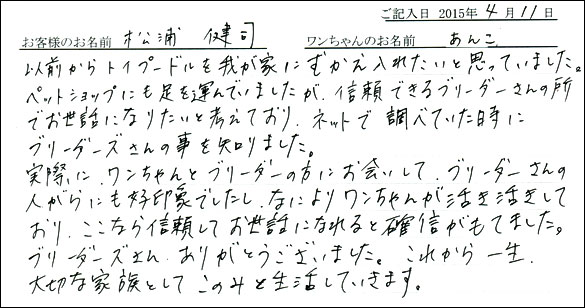 ご記入日 2015年 4月 11日
お客様のお名前 松浦 健司 ワンちゃんのお名前 あんこ
以前からトイプードルを我が家にむかえ入れたいと思っていました。
ペットショップにも足を運んでいましたが、信頼できるブリーダーさんの所
でお世話になりたいと考えており、ネットで調べていた時に
ブリーダーズさんの事を知りました。
実際に、ワンちゃんとブリーダーの方にお会いして、ブリーダーさんの
人がらにも好印象でしたし、なによりワンちゃんが活き活きして
おり、ここなら信頼してお世話になれると確信がもてました。
ブリーダーズさん、ありがとうございました。これから一生、
大切な家族としてこのみと生活していきます。